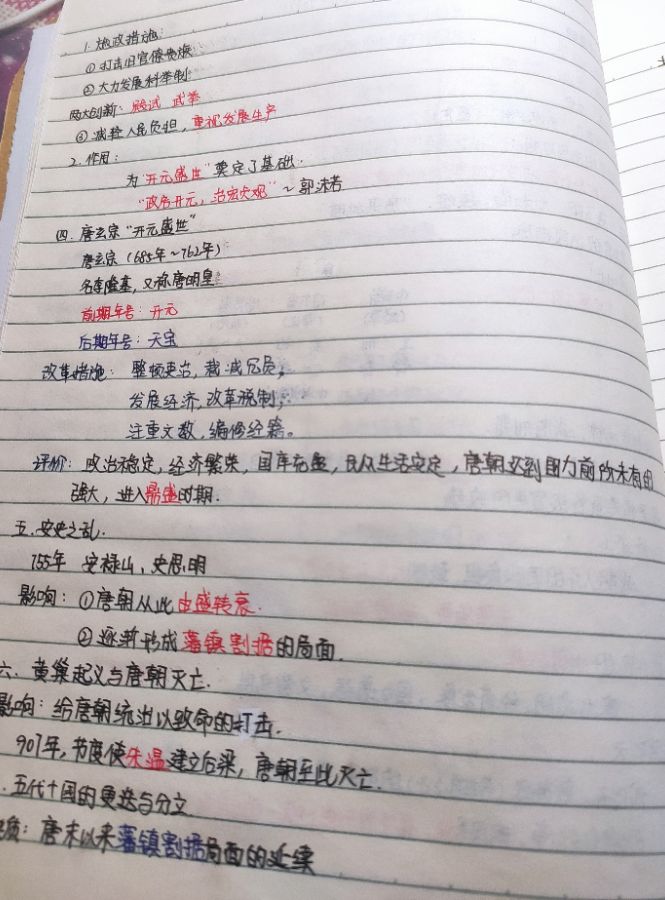 1. 施政措施:
①打击旧官僚贵族
②大力发展科举制
两大创新: 殿试 武举
③减轻人民负担, 重视发展生产
2. 作用:
为"开元盛世"奠定了基础.
"政启开元, 治宏贞观" ~ 郭沫若
四. 唐玄宗"开元盛世"
唐玄宗 (685年~762年)
名李隆基, 又称唐明皇
前期年号: 开元
后期年号: 天宝
改革措施: 整顿吏治, 裁减冗员;
发展经济, 改革税制;
注重文教, 编修经籍。
评价: 政治稳定, 经济繁荣, 国库充盈, 民众生活安定, 唐朝达到国力前所未有的
强大, 进入鼎盛时期.
五. 安史之乱.
755年 安禄山、史思明
影响: ①唐朝从此由盛转衰.
②逐渐形成藩镇割据的局面.
六. 黄巢起义与唐朝灭亡.
影响: 给唐朝统治以致命的打击.
907年, 节度使朱温建立后梁, 唐朝至此灭亡.
. 五代十国的更迭与分立
质: 唐末以来藩镇割据局面的延续